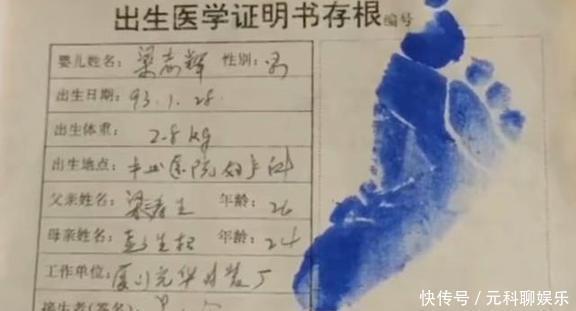 出生医学证明书存根编号
婴儿姓名：梁志辉 性别：男
出生日期：93.1.28.
出生体重：2.8kg
出生地点：中山医院妇产科
父亲姓名：梁 生 年龄：26
母亲姓名：彭 年龄：24
工作单位：厦门 华时装厂
接生者(签名)
快传号 / 元科聊娱乐